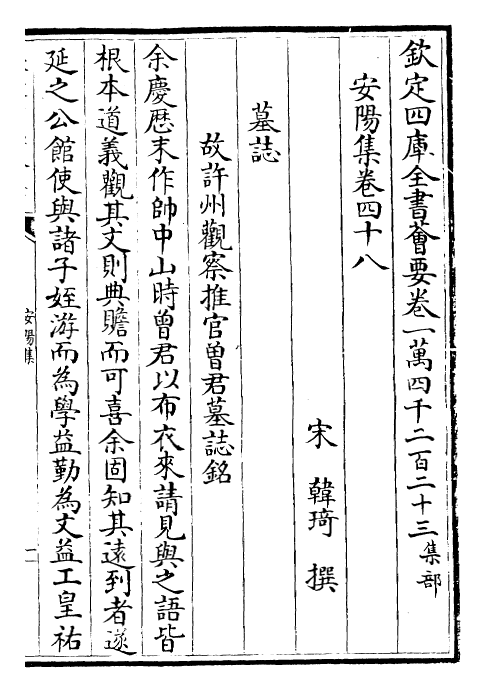 欽定四庫全書薈要卷一萬四千二百二十三集部
安陽集卷四十八
宋韓琦撰
墓誌
故許州觀察推官曽君墓誌銘
余慶厯末作帥中山時曽君以布衣來請見與之語皆
根本道義觀其文則典贍而可喜余固知其遠到者遂
延之公館使與諸子姪游而為學益勤為文益工皇祐
安陽集
一